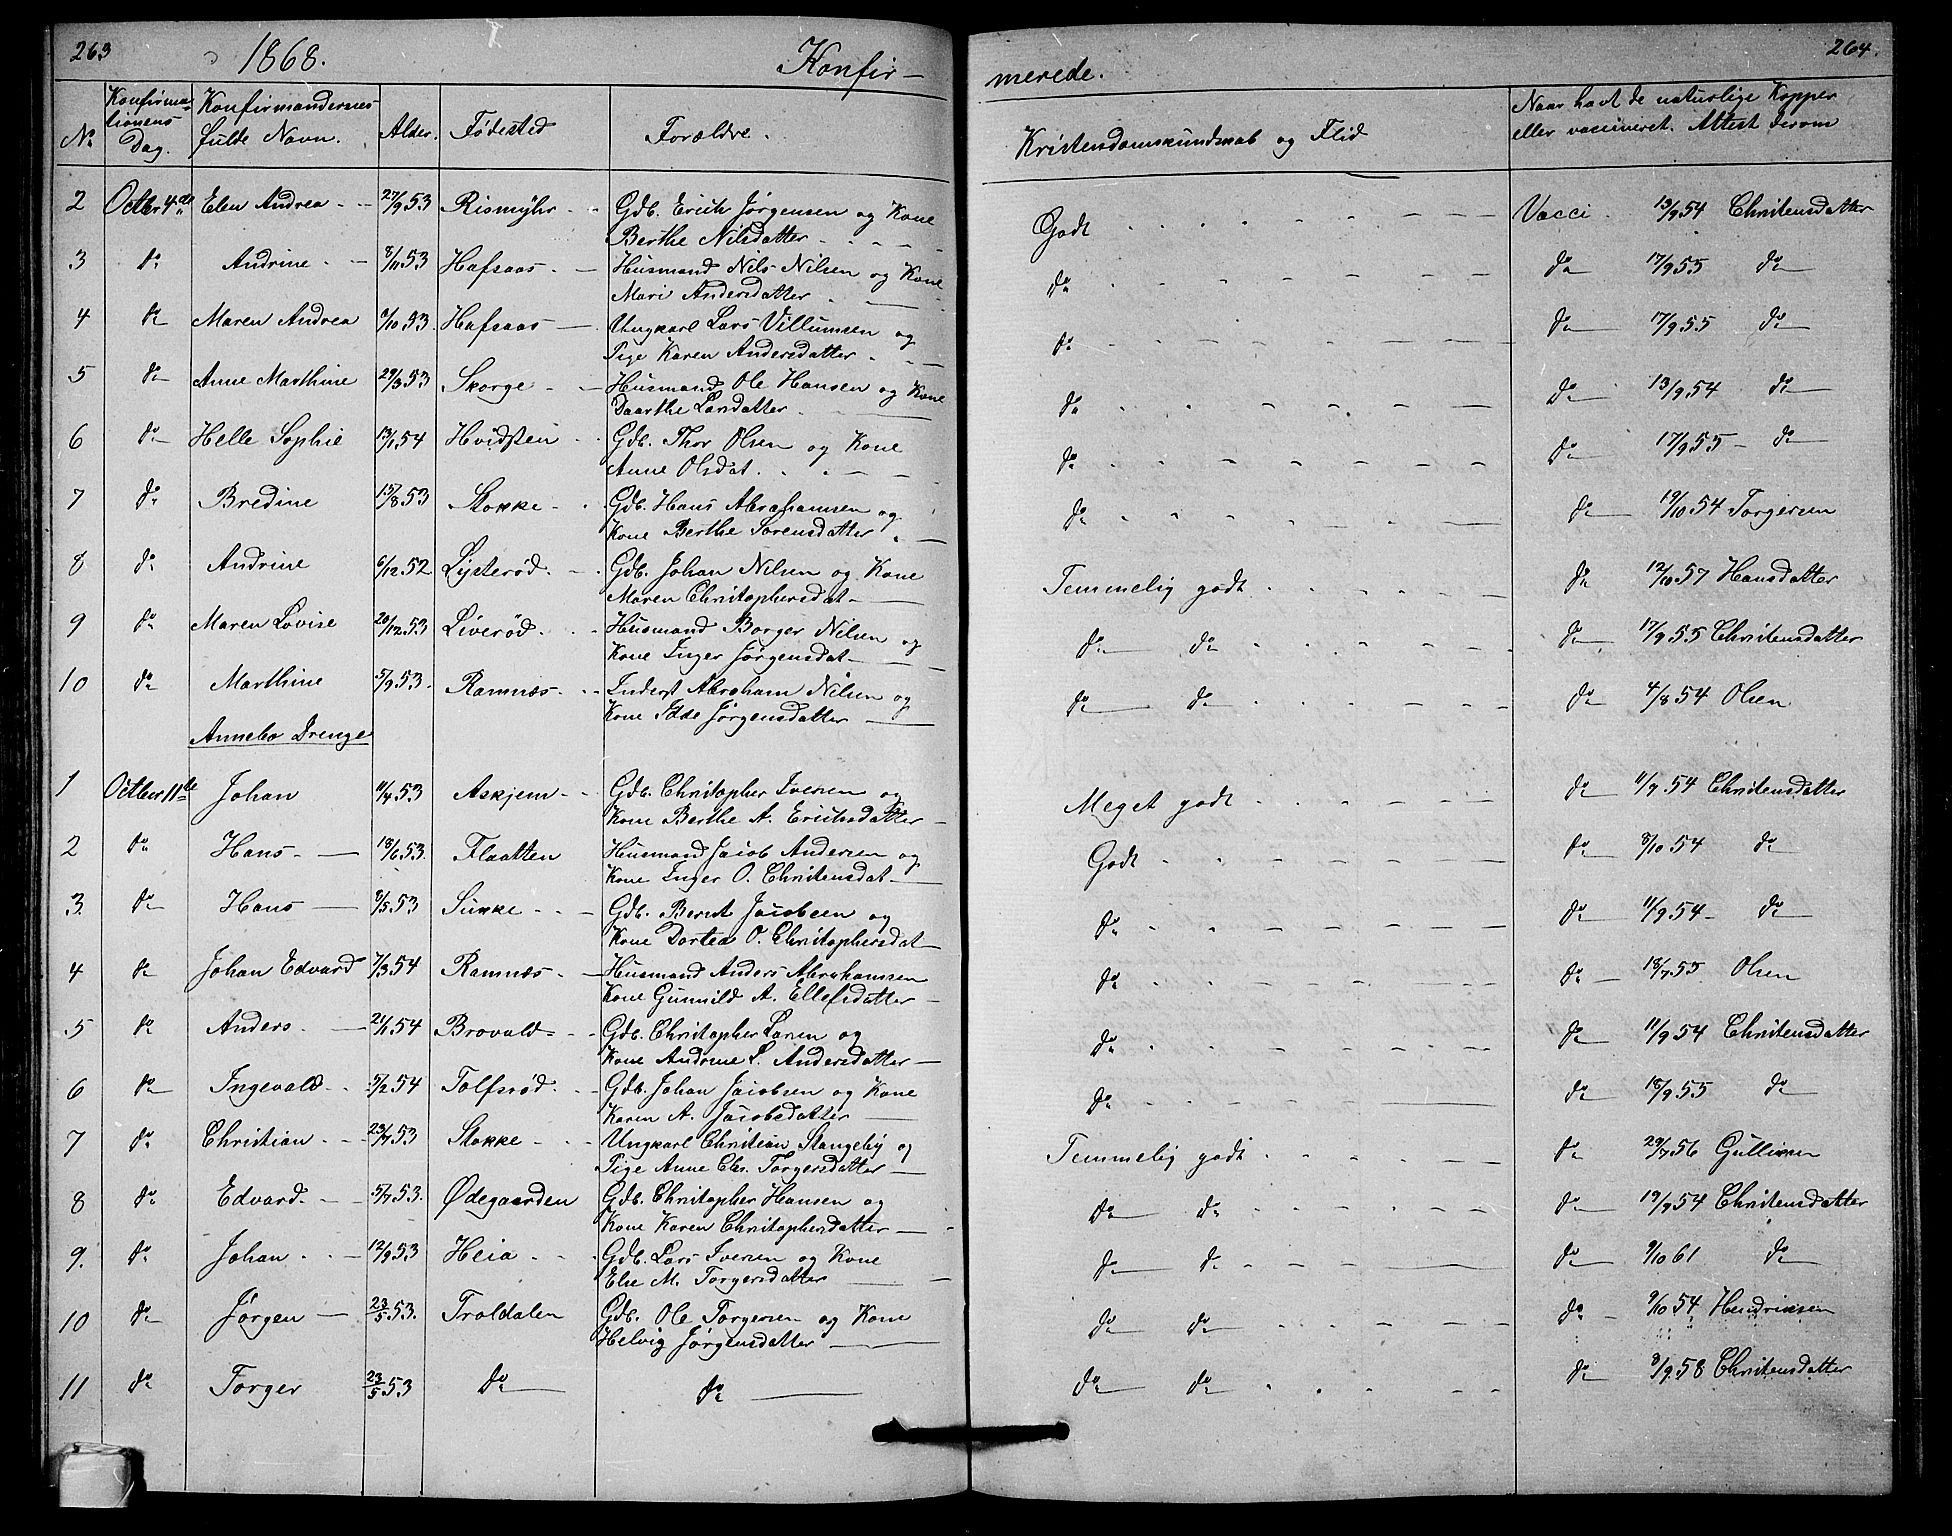 263
1868.
Konfir-
merede.
264.
No
Konfirma-
tionens
Dag.
Konfirmandernes
fulde Navn.
Alder.
Fødested
Forældre.
Kristendomskundskab og Flid
Naar havt de naturlige Kopper
eller vaccineret. Attest derom
2 Octber 4de Elen Andrea 27/9 53 Rismyhr Gdb. Erich Jørgensen og Kone Godt Vacci. 13/9 54 Chritensdatter
Berthe Nilsdatter
3 do Andrine 8/11 53 Hafsaas Husmand Nils Nilsen og Kone do do 17/9 55 do
Mari Andersdatter
4 do Maren Andrea /10 53 Hafsaas Ungkarl Lars Villumsen og do do 17/9 55 do
Pige Karen Andersdatter
5 do Anne Marthine 29/3 53 Skorge Husmand Ole Hansen og Kone do do 13/9 54 do
Daarthe Larsdatter
6 do Helle Sophie 13/1 54 Hvidsten Gdb. Thor Olsen og Kone do do 17/9 55 do
Anne Olsdat.
7 do Bredine 15/8 53 Stokke Gdb. Hans Abrahamsen og do do 19/10 54 Torgersen
Kone Berthe Sørensdatter
8 do Andrine 6/12 52 Lysterød Gdb. Johan Nilsen og Kone Temmelig godt do 12/10 57 Hansdatter
Maren Chritophersdat
9 do Maren Lovise 20/12 53 Liverød Husmand Borger Nilsen og do do do 17/9 55 Chritensdatter
Kone Inger Jørgensdat
10 do Marthine 5/9 53 Ramnæs Inderst Abraham Nilsen og do do do 4/8 54 Olsen
Kone Idde Jørgensdatter
Annebo Drenge
1 Octber 11te Johan 11/4 53 Askjem Gdb. Chritopher Iversen og Meget godt do 11/9 54 Chritensdatter
Kone Berthe A. Erichsdatter
2 do Hans 18/6 53 Flaatten Husmand Jacob Andersen og Godt do 8/10 54 do
Kone Inger O. Chritensdat
3. do Hans 8/5 53 Sukke Gdb. Bernt Jacobsen og do do 11/9 54 do
Kone Dortea O. Chritophersdat
4 do Johan Edvard 7/3 54 Ramnæs Husmand Anders Abrahamsen do do 18/7 55 Olsen
Kone Gunnild A. Ellefsdatter
5 do Anders 21/1 54 Brovald Gdb. Chritopher Larsen og do do 11/9 54 Chritensdatter
Kone Andrine L. Andersdatter
6 do Ingevald 5/2 54 Tolfsrød Gdb. Johan Jacobsen og Kone do do 18/9 55 do
Karen A. Jacobsdatter
7 do Christian 23/7 53 Stokke Ungkarl Christian Stangeby og Temmelig godt do 29/7 56 Gulliksen
Pige Anne Chr. Torgersdatter
8 do Edvard 5/7 53. Ødegaarden Gdb. Chritopher Hansen og do do do 19/9 54 Chritensdatter
Kone Karen Chritophersdatter
9. do Johan 12/9 53 Heia Gdb. Lars Iversen og Kone do do do 9/10 61 do
Else M. Torgersdatter
10 do Jørgen 23/5 53. Troldalen Gdb. Ole Torgersen og Kone do do do 9/10 54 Hendriksen
Helvig Jørgensdatter
11 do Torger 23/5 53 do do do do do 8/9 58 Chritensdatter